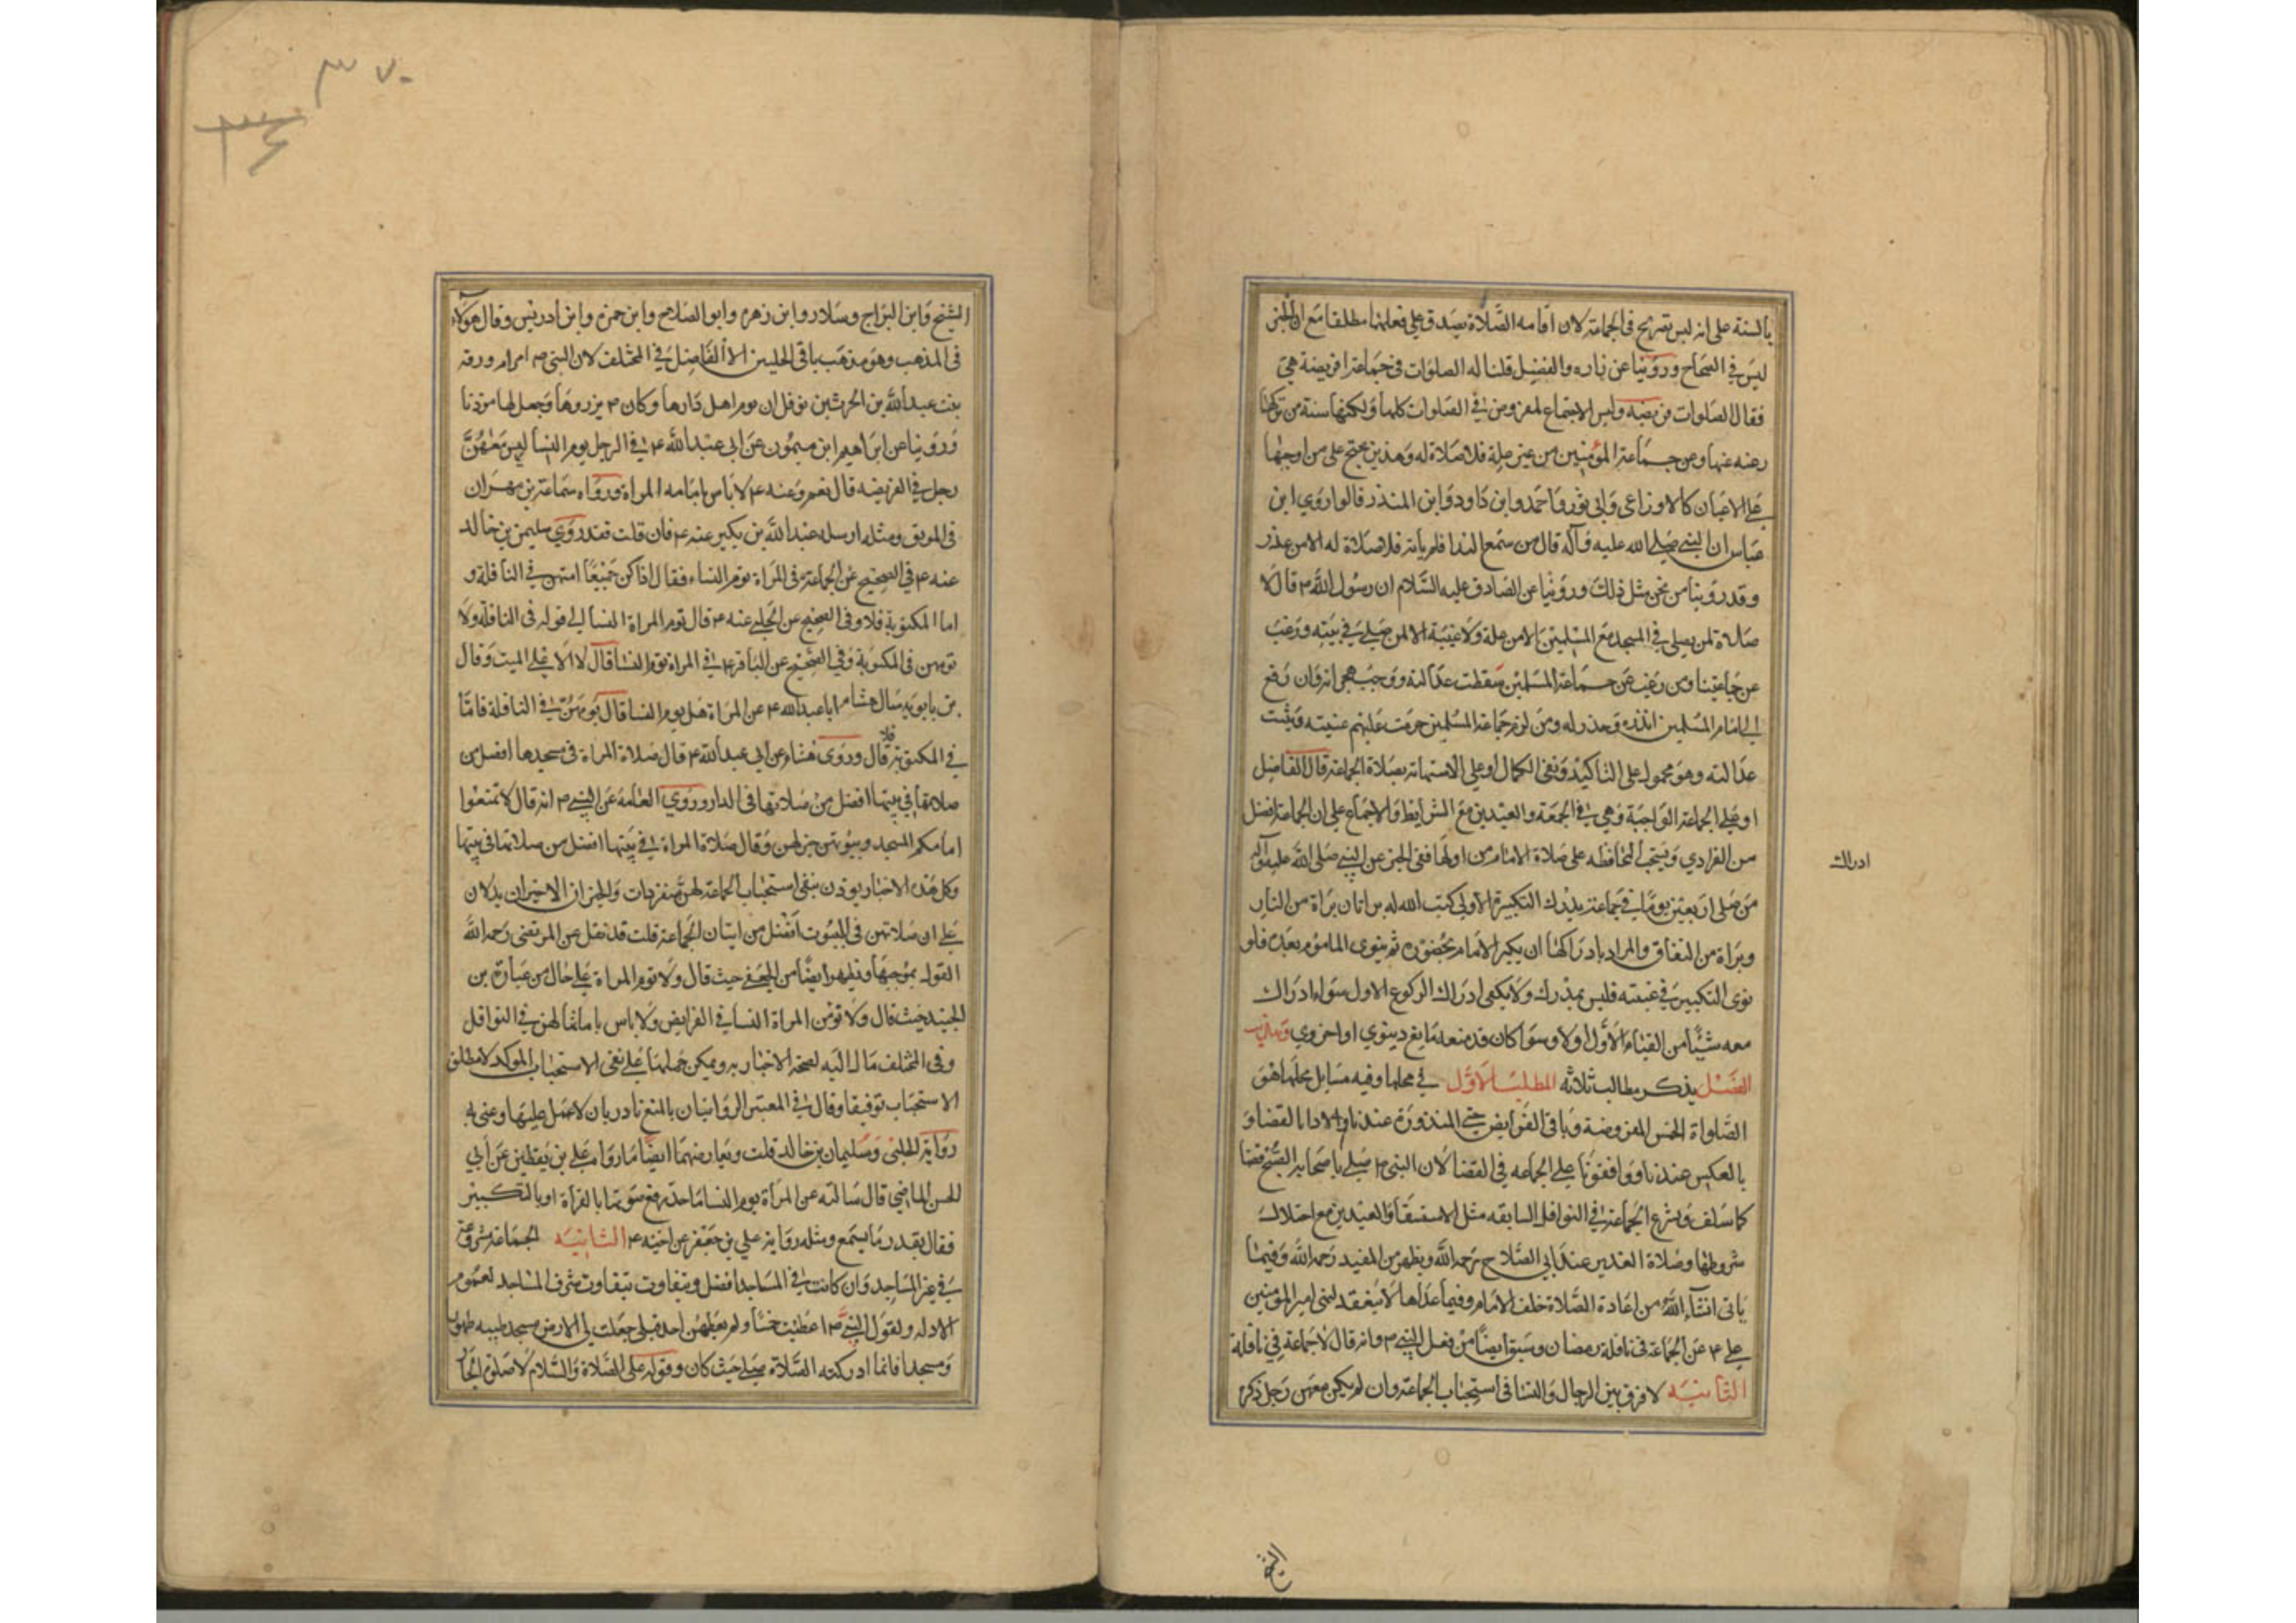 بالسنة على انه ليس تصريح في الجماعة لان اقامه الصلاة يصدق على فعلها مطلقا مع ان الخبر
ليس في الصحاح وروينا عن زراره والفضيل قلنا له الصلوات في جماعة افريضة هي
فقال الصلوات فريضه وليس الاجتماع بمفروض في الصلوات كلها ولكنها سنة من تركها
رغبه عنها وعن جماعة المؤمنين من غير علة فلا صلاة له وهذين يحتج على من اوجبها
على الاعيان كالاوزاعي وابي ثور واحمد وابن داود وابن المنذر قالوا روي ابن
عباس ان النبي صلى الله عليه وآله قال من سمع الندا فلم يأته فلا صلاة له الا من عذر
وقد روينا من نحن مثل ذلك وروينا عن الصادق عليه السلام ان رسول الله ص قال لا
صلاة لمن يصلى في المسجد مع المسلمين الا من علة ولا غيبة الا لمن صلى في بيته ورغب
عن جماعتنا ومن رغب عن جماعة المسلمين سقطت عدالته ووجب هجرانه وان رفع
الى امام المسلمين انذره وحذره ومن لزم جماعة المسلمين حرمت عليهم غيبته وثبتت
عدالته وهو محمول على التأكيد ونفي الكمال او على الاستهانة بصلاة الجماعة قال الفاضل
او على الجماعة الواجبة وهي في الجمعه والعيدين مع الشرايط والاجماع على ان الجماعة افضل
من الفرادي ويستحب المحافظه على صلاة الامام من اولها ففي الخبر عن النبي صلى الله عليه وآله
من صلى اربعين يوما في جماعة يدرك التكبيرة الأولى كتب الله له براتان براة من النار
وبراة من النفاق والمراد بادراكها ان يكبر الامام بحضوره ثم ينوي المأموم بعده فلو
نوى التكبير في غيبته فليس بمدرك ولا يكفي ادراك الركوع الاول سواء ادراك
ادراك
معه شيئا من القيام الأول اولا وسوا كان قد منعه مانع دينوي او اخروي وهذا
الفصل يذكر مطالب ثلاثه المطلب الأول في محلها وفيه مسايل محلها هو
الصلواة الخمس المفروضة وباقي الفرايض حتى المنذورة عندنا والادا بالقضا و
بالعكس عندنا ووافقونا على الجماعه في القضا لان النبي ص صلى باصحابه الصبح قضا
كما سلف وتشرع الجماعة في النوافل السابقه مثل الاستسقا والعيدين مع اختلاف
شروطها وصلاة الغدير عند ابي الصلاح رحمه الله ويظهر من المفيد رحمه الله وفيما
ياتى انشاء الله من اعادة الصلاة خلف الامام وفيما عداها لا ينعقد لنهي امير المؤمنين
علي ع عن الجماعة في نافلة رمضان وسبق ايضا من فعل النبي ص وانه قال لا جماعة في نافلة
الثانيه لا فرق بين الرجال والنسا في استحباب الجماعة وان لم يكن معهن رجل ذكره
الشيخ
٣٧٠
الشيخ وابن البراج وسلار وابن زهره وابو الصلاح وابن حمزه وابن ادريس وقال هؤلاء
في المذهب وهو مذهب باقي الحليين الا الفاضل في المختلف لان النبي ص امر ام ورقه
بنت عبد الله بن الحرث بن نوفل ان يوم اهل دارها وكان ص يزورها وجعل لها موذنا
وروينا عن ابراهيم ابن ميمون عن ابي عبد الله ع في الرجل يوم النسا ليس معهن
رجل في الفريضه قال نعم وعنه ع لا باس بامامه المراة ورواه سماعة بن مهران
في الموثق ومثله ارسله عبد الله بن بكير عنه ع فان قلت فقد روي سليمن بن خالد
عنه ع في الصحيح عن الجماعة في المراة توم النساء فقال اذا كن جميعا امتهن في النافلة و
اما المكتوبة فلا وفي الصحيح عن الحلبي عنه ع قال توم المراة النسا الى قوله في النافلة ولا
تومهن في المكتوبة وفي الصحيح عن الباقر ع في المراة توم النسا قال لا الا على الميت وقال
بن بابويه سال هشام ابا عبد الله ع عن المراة هل يوم النسا قال تومهن في النافلة فاما
في المكتوبة فلا قال وروي هشام عن ابي عبد الله ع قال صلاة المراة في مسجدها افضل من
صلاتها في بيتها افضل من صلاتها في الدار وروي العامة عن النبي ص انه قال لا تمنعوا
امامكم المسجد وبيوتهن خير لهن وقال صلاة المراة في بيتها افضل من صلاتها في بيتها
وكل هذه الاخبار يوذن بنفي استحباب الجماعة لهن منفردات والخبران الاخيران يدلان
على ان صلاتهن في البيوت افضل من اتيان الجماعة قلت قد نقل عن المرتضى رحمه الله
القوله بموجبها ويظهر ايضا من الجعفي حيث قال ولا توم المراة على حال من عبارة بن
الجنيد حيث قال ولا تومن المراة النسا في الفرايض ولا باس بامامتها لهن في النوافل
وفي المختلف مال اليه لصحة الاخبار به ويمكن حملها على نفي الاستحباب الموكد لا مطلق
الاستحباب توفيقا وقال في المعتبر الروايتان بالمنع نادرتان لا عمل عليها وعنى به
رواية الحلبى وسليمان بن خالد قلت ويعارضهما ايضا ما رواه على بن يقطين عن أبي
الحسن الماضي قال سالته عن المراة يوم النسا ما حد رفع صوتها بالقراة او بالتكبير
فقال بقدر ما يسمع ومثله رواية علي بن جعفر عن اخيه ع الثانيه الجماعة مشروعة
في غير المساجد وان كانت في المساجد افضل ويتفاوت بتفاوت شرف المساجد لعموم
الادله ولقول النبي ص اعطيت خمسا ولم يعطهن احد قبلي جعلت لي الارض مسجد طيبه طهورا
ومسجدا فانما ادركته الصلاة صلى حيث كان وقوله على الصلاة والسلام لا صلوة لجار